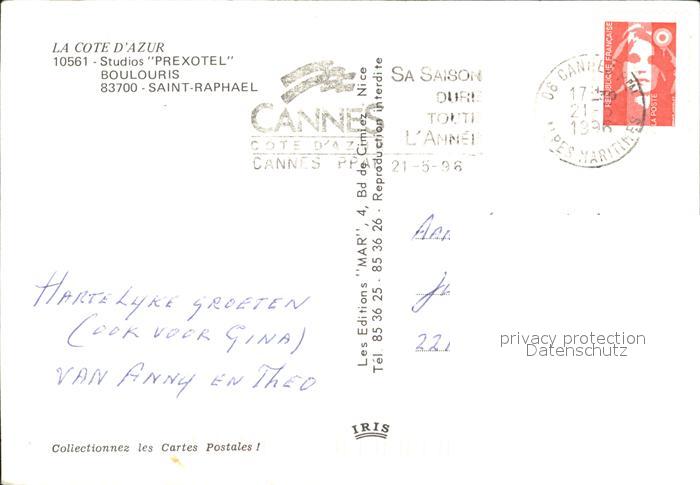 LA COTE D'AZUR
10561 - Studios "PREXOTEL"
BOULOURIS
83700 - SAINT-RAPHAEL
CANNES
COTE D'AZUR
CANNES PPAL 21-5-96
SA SAISON
DURE
TOUTE
L'ANNÉE
06 CANNES
17 H
21-5
199
ALPES MARITIMES
REPUBLIQUE FRANÇAISE
LA POSTE
Les Editions "MAR", 4, Bd de Cimiez - Nice
Tél 85 36 25 - 85 36 26 - Reproduction interdite
HARTELIJKE GROETEN
(OOK VOOR GINA)
VAN ANNY EN THEO
privacy protection
Datenschutz
IRIS
Collectionnez les Cartes Postales !